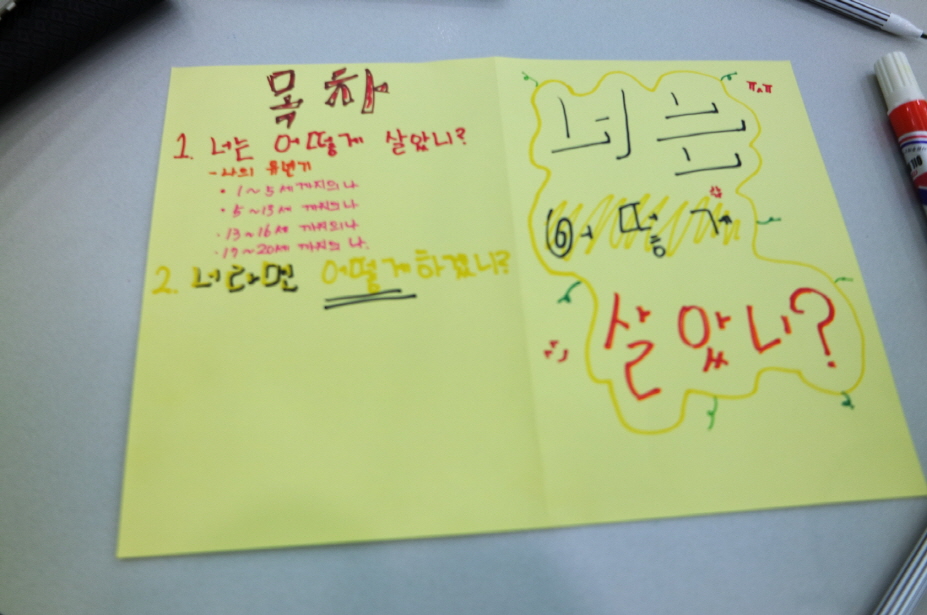 목차
1. 너는 어떻게 살았니?
- 나의 유년기
• 1~5세 까지의 나
• 5~13세 까지의 나
• 13~16세 까지의 나
• 17~20세 까지의 나.
2. 너라면 어떻게 하겠니?
너는
ㅠㅠ
어떻게
살았니?
110